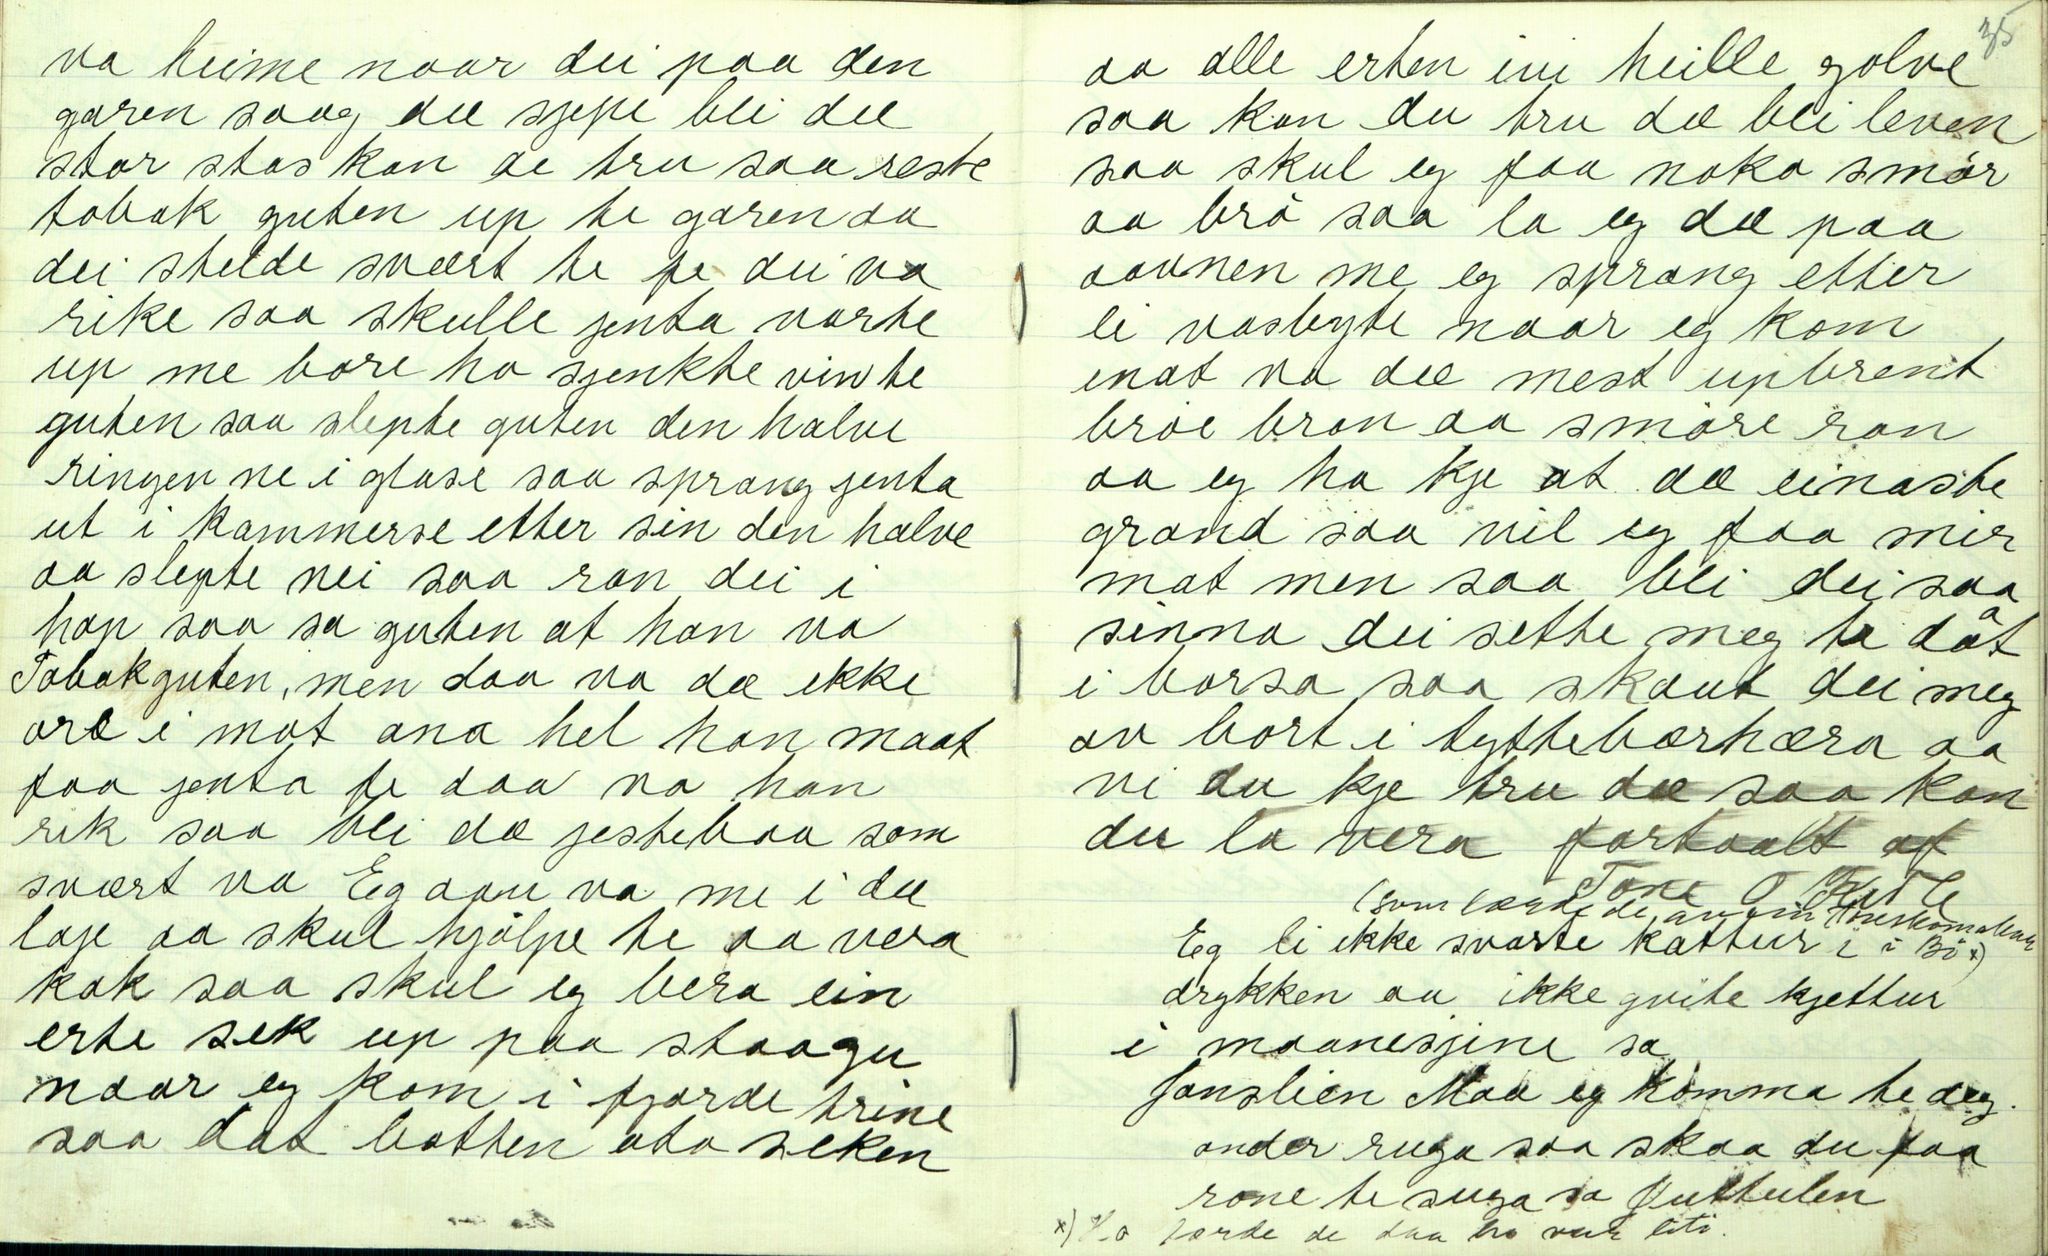 va heime naar dei paa den
garen saag dæ sjepe blei dæ
stor stas kan de tru saa reste
tobak guten up te garen aa
dei stelde svært te fe dei va
rike saa skulle jenta varte
up me bore ho sjenkte vin te
guten saa slepte guten den halve
ringen ne i glase saa sprang jenta
ut i kammerse etter sin den halve
aa slepte nei saa ran dei i
hop saa sa guten at han va
Tobakguten, men daa va dæ ikke
ore i mot ana hel han maat
faa jenta fe daa va han
rik saa blei dæ jestebaa som
svært va Eg aau va me i dæ
laje aa skul hjölpe te aa vera
kok saa skul eg bera ein
erte sek up paa staagu
naar eg kom i fjorde trine
saa dat botten ata seken
35
aa alle erten ivi heille golve
saa kan du tru dæ blei leven
saa skul eg faa noko smör
aa brö saa la eg dæ paa
aavnen me eg sprang etter
ei vasbyte naar eg kom
inat va dæ mest upbrent
bröe bran aa smöre ran
aa eg ha kje at dæ einaste
grand saa vil eg faa meir
mat men saa blei dei saa
sinna dei sette meg te dåt
i borsa saa skaut dei meg
av bort i tyttebærhæra aa
vi du kje tru dæ saa kan
du la vera fortaalt af
Tone O
(som lærde de av ein
i Bö x)
Eg li ikke svarte kattur i
drykken aa ikke gvite kjettur
i maanesjine sa
Jonslien Maa eg komma te deg
onder ruga saa skaa du faa
rone te suga sa Juttulen
x) Ho lærde de daa ho var liti.